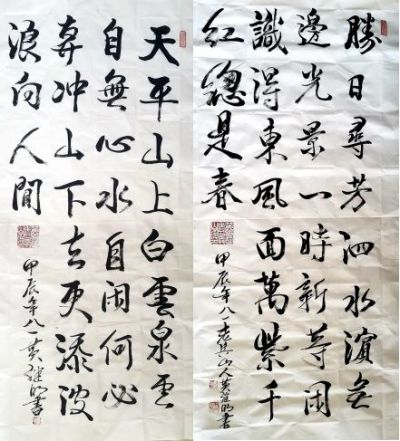 勝日尋芳泗水濱無
邊光景一時新等闲
識得東風面萬紫千
紅總是春
甲辰年八一山人黄继明书
天平山上白雲泉雲
自無心水自闲何必
奔冲山下去更添波
浪向人間
甲辰年八一黄继明書